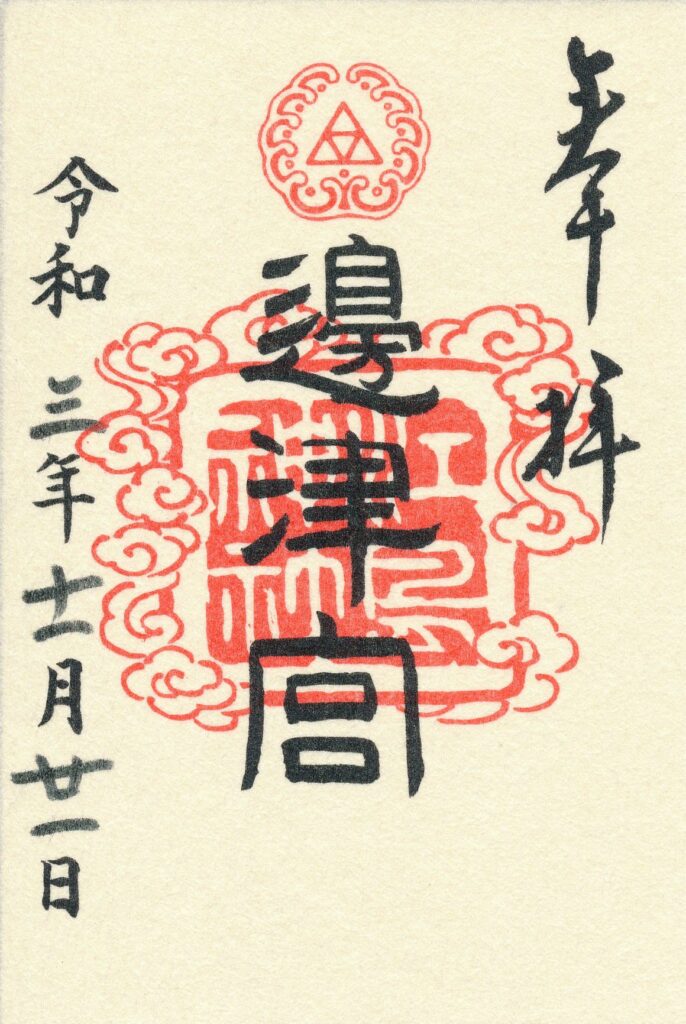 奉拝
邊津宮
令和三年十一月廿一日